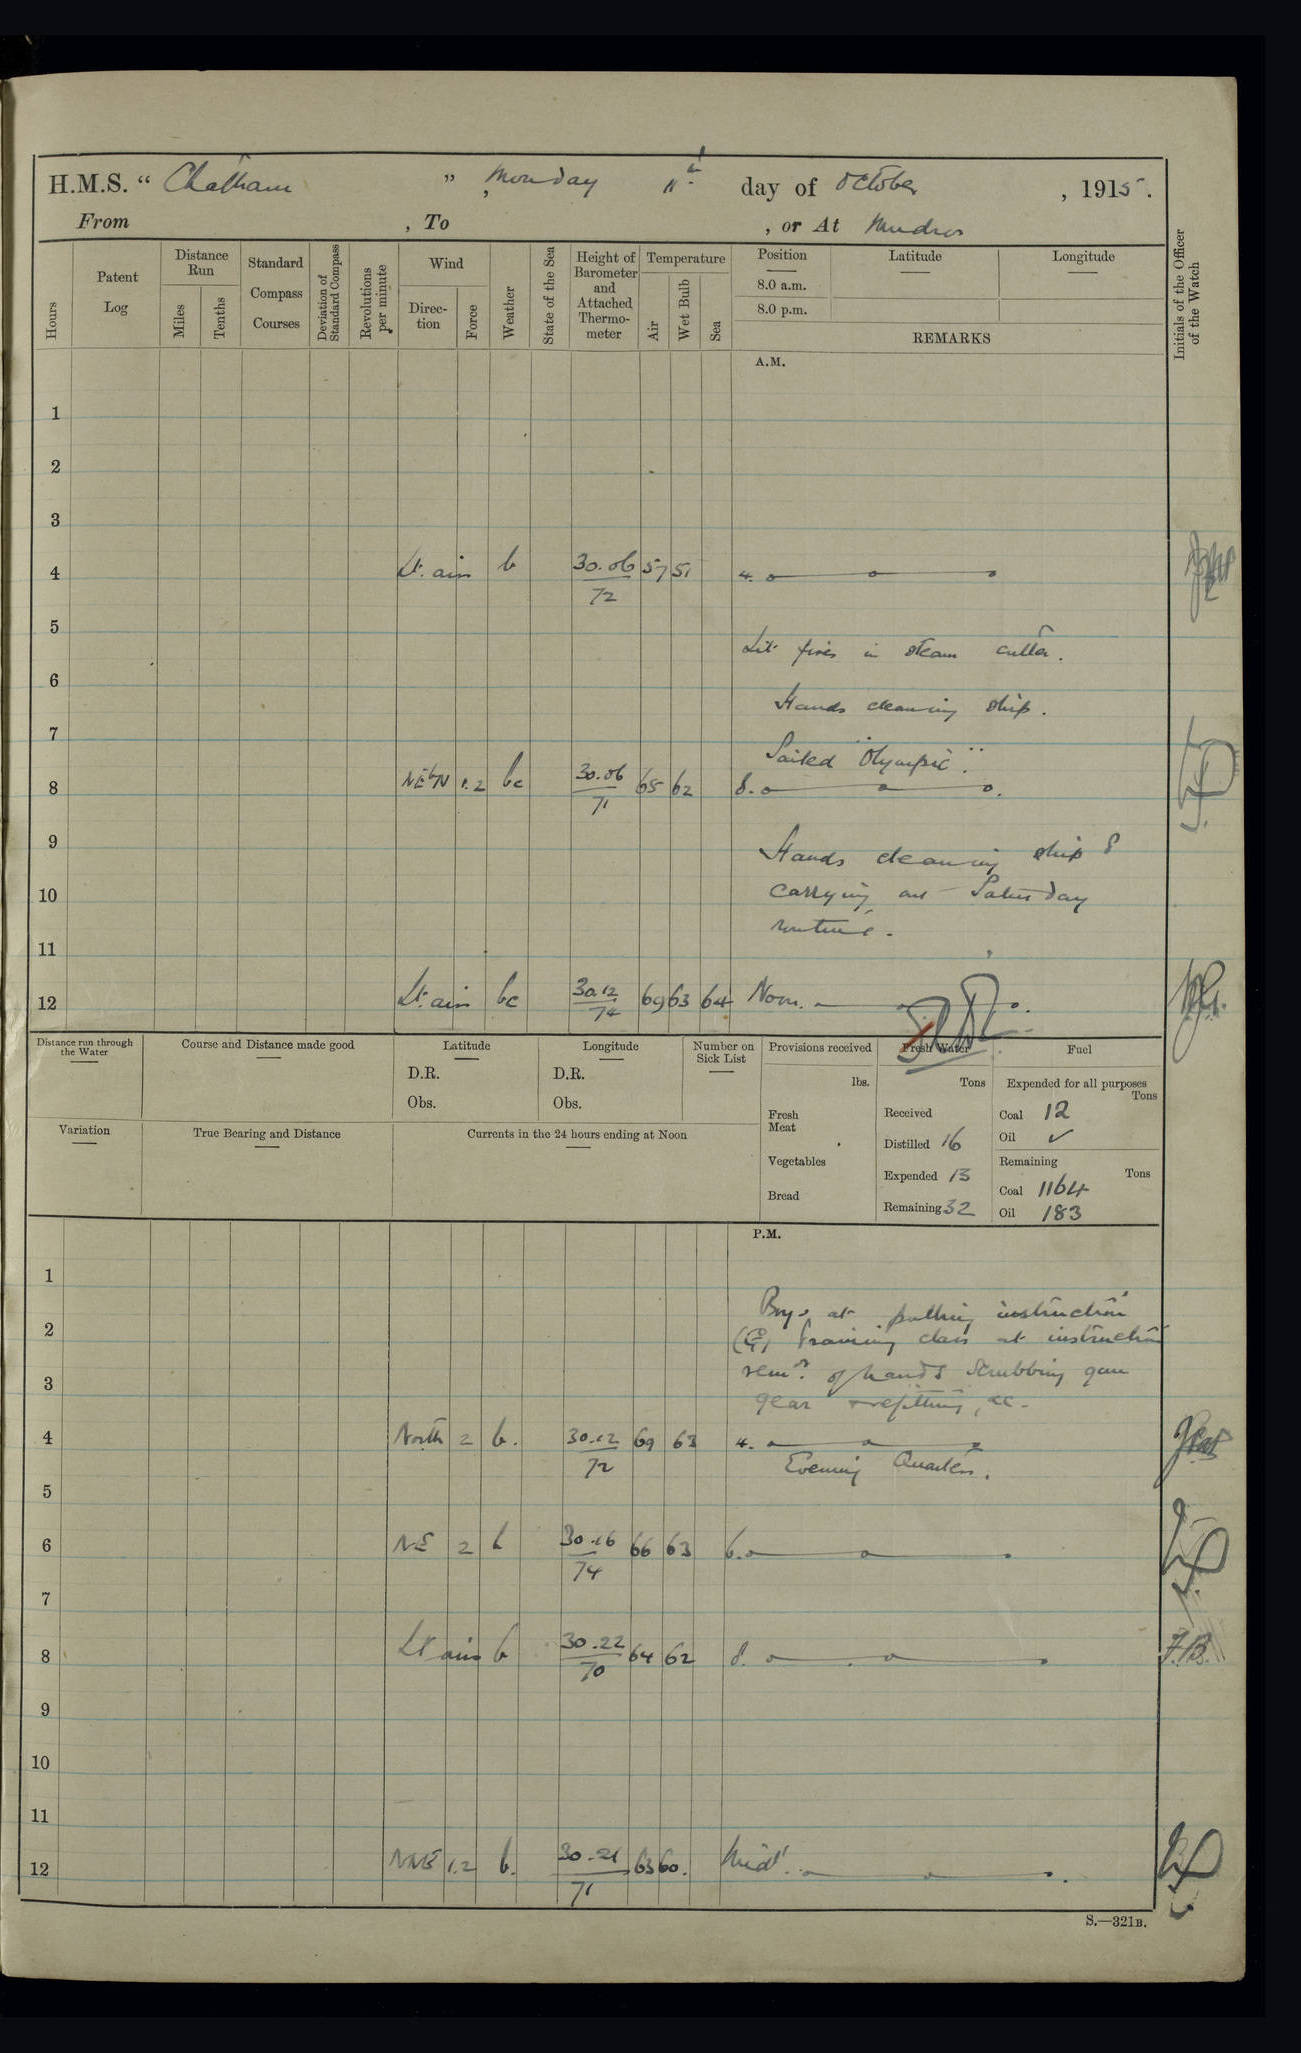 H.M.S. “ Chatham ” , Monday 11th day of October , 1915.
From , To , or At Mudros
Hours
Patent Log
Distance Run
Miles
Tenths
Standard Compass Courses
Deviation of Standard Compass
Revolutions per minute
Wind
Direction
Force
Weather
State of the Sea
Height of Barometer and Attached Thermometer
Temperature
Air
Wet Bulb
Sea
Position
8.0 a.m.
8.0 p.m.
Latitude
Longitude
REMARKS
Initials of the Officer of the Watch
A.M.
1
2
3
4 Lt. airs b 30.06/72 57 51 4.
5
Lit fires in steam cutter.
6
Hands cleaning ship.
7
Sailed "Olympic".
8 NE'bN 1.2 bc 30.06/71 65 62 8.
9
Hands cleaning ship &
10 carrying out Saturday
routine.
11
12 Lt. airs bc 30.12/74 69 63 64 Noon.
Distance run through the Water
Course and Distance made good
Latitude
D.R.
Obs.
Longitude
D.R.
Obs.
Number on Sick List
Provisions received
lbs.
Fresh Meat
Vegetables
Bread
Fresh Water
Tons
Received
Distilled 16
Expended 13
Remaining 32
Fuel
Expended for all purposes
Tons
Coal 12
Oil ✓
Remaining
Tons
Coal 1164
Oil 183
Variation
True Bearing and Distance
Currents in the 24 hours ending at Noon
P.M.
1
Boys at pulling instruction
2 (G) Training class at instruction
3 remr. of hands scrubbing gun
gear refitting, &c.
4 North 2 b. 30.12/72 69 63 4.
Evening Quarters.
5
6 NE 2 b 30.16/74 66 63 6.
7
8 Lt airs b 30.22/70 64 62 8. F.B.
9
10
11
12 NNE 1.2 b. 30.21/71 63 60. Midt.
S.—321B.